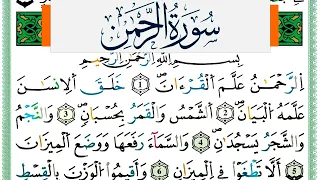 سُورَةُ الرَّحْمَٰن
بِسْمِ اللَّهِ الرَّحْمَٰنِ الرَّحِيمِ
اَلرَّحْمَٰنُ عَلَّمَ اَلْقُرْءَانَ ١ خَلَقَ اَلْاِنسَٰنَ
عَلَّمَهُ اُلْبَيَانَ ٢ اَلشَّمْسُ وَالْقَمَرُ بِحُسْبَانٍ ٣ وَالنَّجْمُ
وَالشَّجَرُ يَسْجُدَانِ ٤ وَالسَّمَآءَ رَفَعَهَا وَوَضَعَ اَلْمِيزَانَ
٥ أَلَّا تَطْغَوْا فِے اِلْمِيزَانِ ٦ وَأَقِيمُوا اُلْوَزْنَ بِالْقِسْطِ